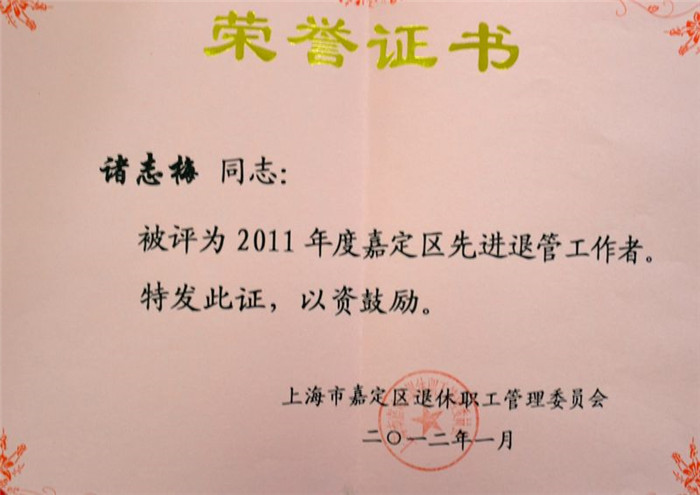 荣誉证书
诸志梅 同志:
被评为2011年度嘉定区先进退管工作者。
特发此证，以资鼓励。
上海市嘉定区退休职工管理委员会
二〇一二年一月